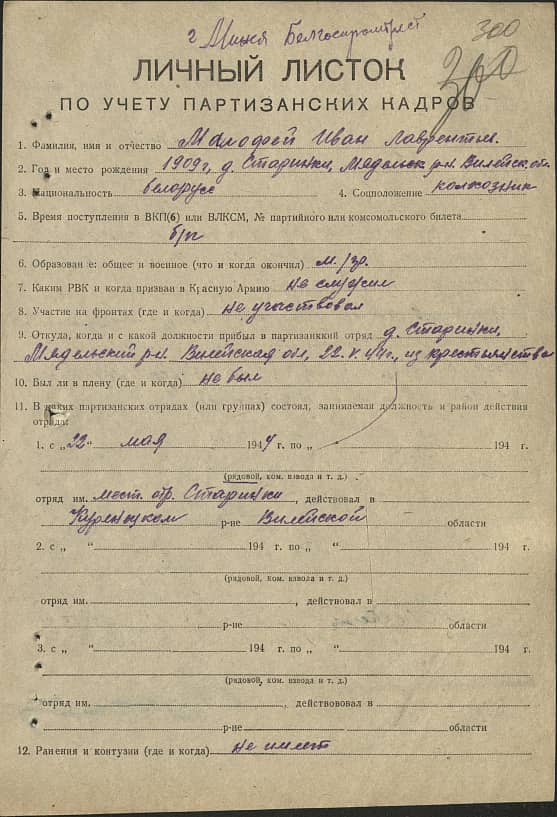 г Минск Белгоспромтрест 300
300
ЛИЧНЫЙ ЛИСТОК
ПО УЧЕТУ ПАРТИЗАНСКИХ КАДРОВ
1. Фамилия, имя и отчество Малофей Иван Лаврентьев.
2. Год и место рождения 1909 г, д. Старинки, Мядельск. р.н. Вилейск. от.
3. Национальность белорусс 4. Соцположение колхозник
5. Время поступления в ВКП(б) или ВЛКСМ, № партийного или комсомольского билета
б/п
6. Образование: общее и военное (что и когда окончил) м./гр.
7. Каким РВК и когда призван в Красную Армию не служил
8. Участие на фронтах (где и когда) не участвовал
9. Откуда, когда и с какой должности прибыл в партизанккий отряд д. Старинки,
Мядельский р-н. Вилейская обл, 22.V.44г., из крестьянства
10. Был ли в плену (где и когда) не был
11. В каких партизанских отрядах (или группах) состоял, занимаемая должность и район действия
отряда:
1. с „22" мая 1944 г. по „ 194 г.
(рядовой, ком. взвода и т. д.)
отряд им. мест. отр. Старинки, действовал в
Куренецком р-не Вилейской области
2. с „ " 194 г. по „ " 194 г.
(рядовой, ком. взвода и т. д.)
отряд им. , действовал в
р-не области
3. с „ " 194 г. по „ " 194 г.
(рядовой, ком. взвода и т. д.)
отряд им. , действововал в
р-не области
12. Ранения и контузии (где и когда) не имеет